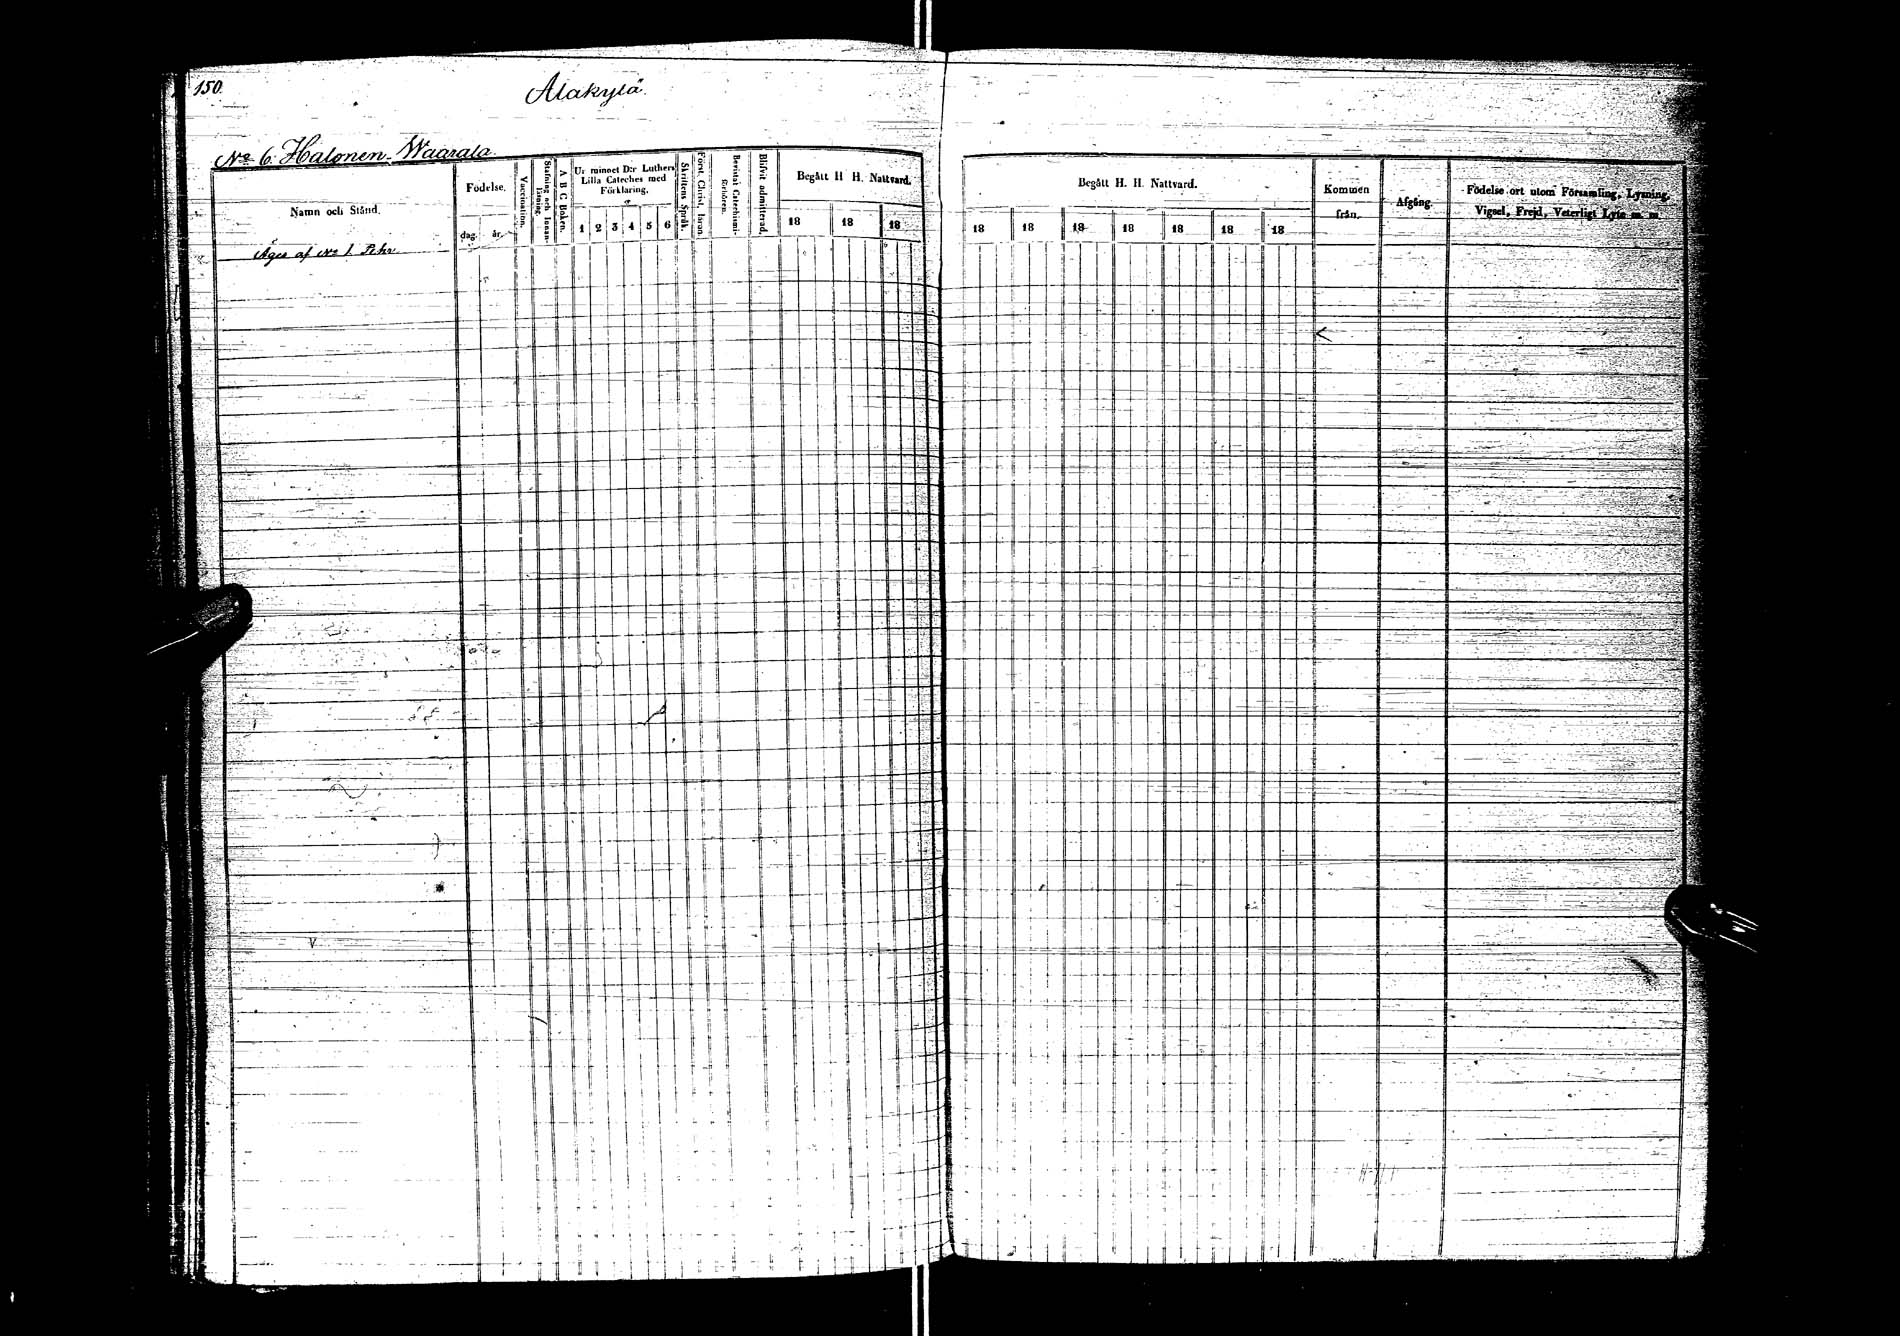 150.
Alakylä.
No 6. Halonen-Waarala
Namn och Stånd.
Födelse.
dag.
år.
Vaccination.
Stafning och Innan-
läsning.
A B C Boken.
Ur minnet D:r Luthers
Lilla Cateches med
Förklaring.
1 2 3 4 5 6
Skriftens Språk.
Först. Christ. Insan.
Bevistat Catechismi-
förhören.
Blifvit admitterad.
Begått H. H. Nattvard.
18 18 18
Begått H. H. Nattvard.
18 18 18 18 18 18 18
Kommen
från.
Afgång.
Födelse ort utom Församling, Lysning,
Vigsel, Frejd, Veterligt Lyte m. m.
Äges af No 1. Pehr